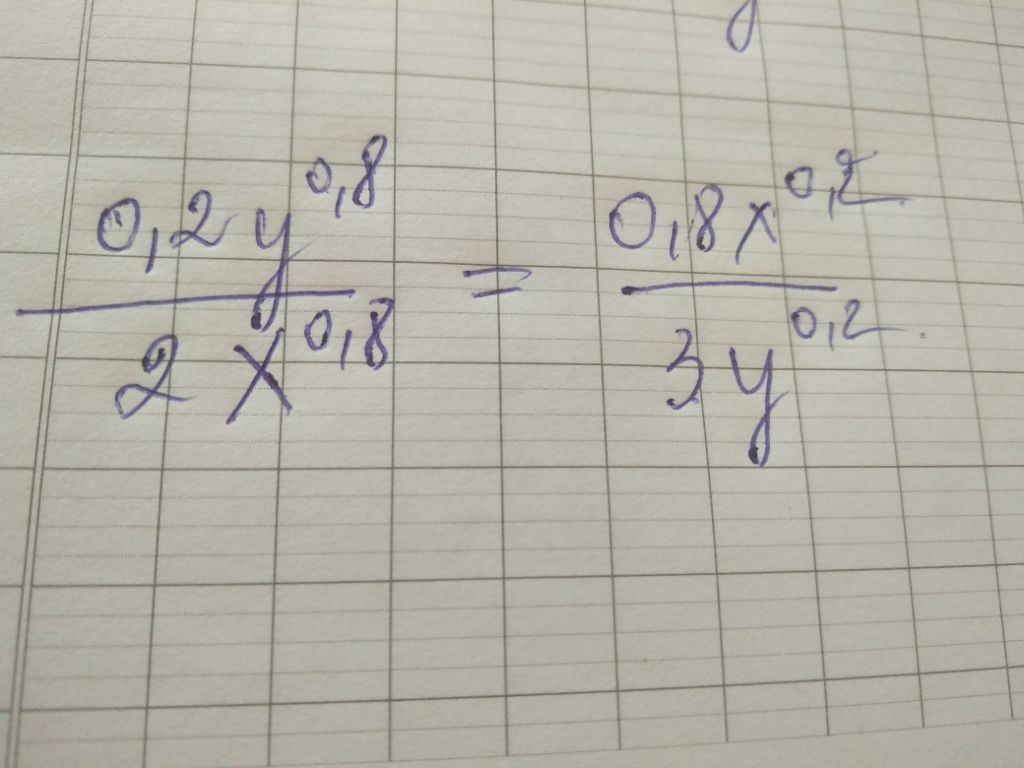 0,2 y^0,8 / 2 x^0,8 = 0,8 x^0,2 / 3 y^0,2